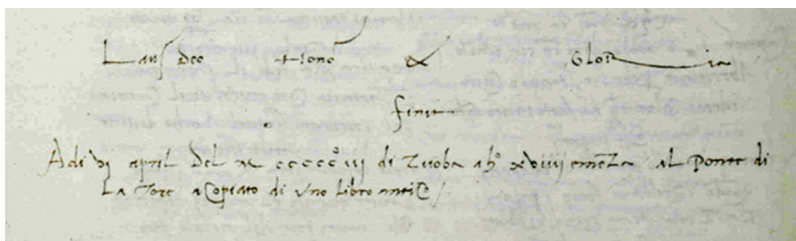 Laus deo Hono & Gloria
finis
Adi vj april del M ccccc° iij di zuoba a h° xviiij emeza al Ponte di
La Tore acopiato di vno libro antico /